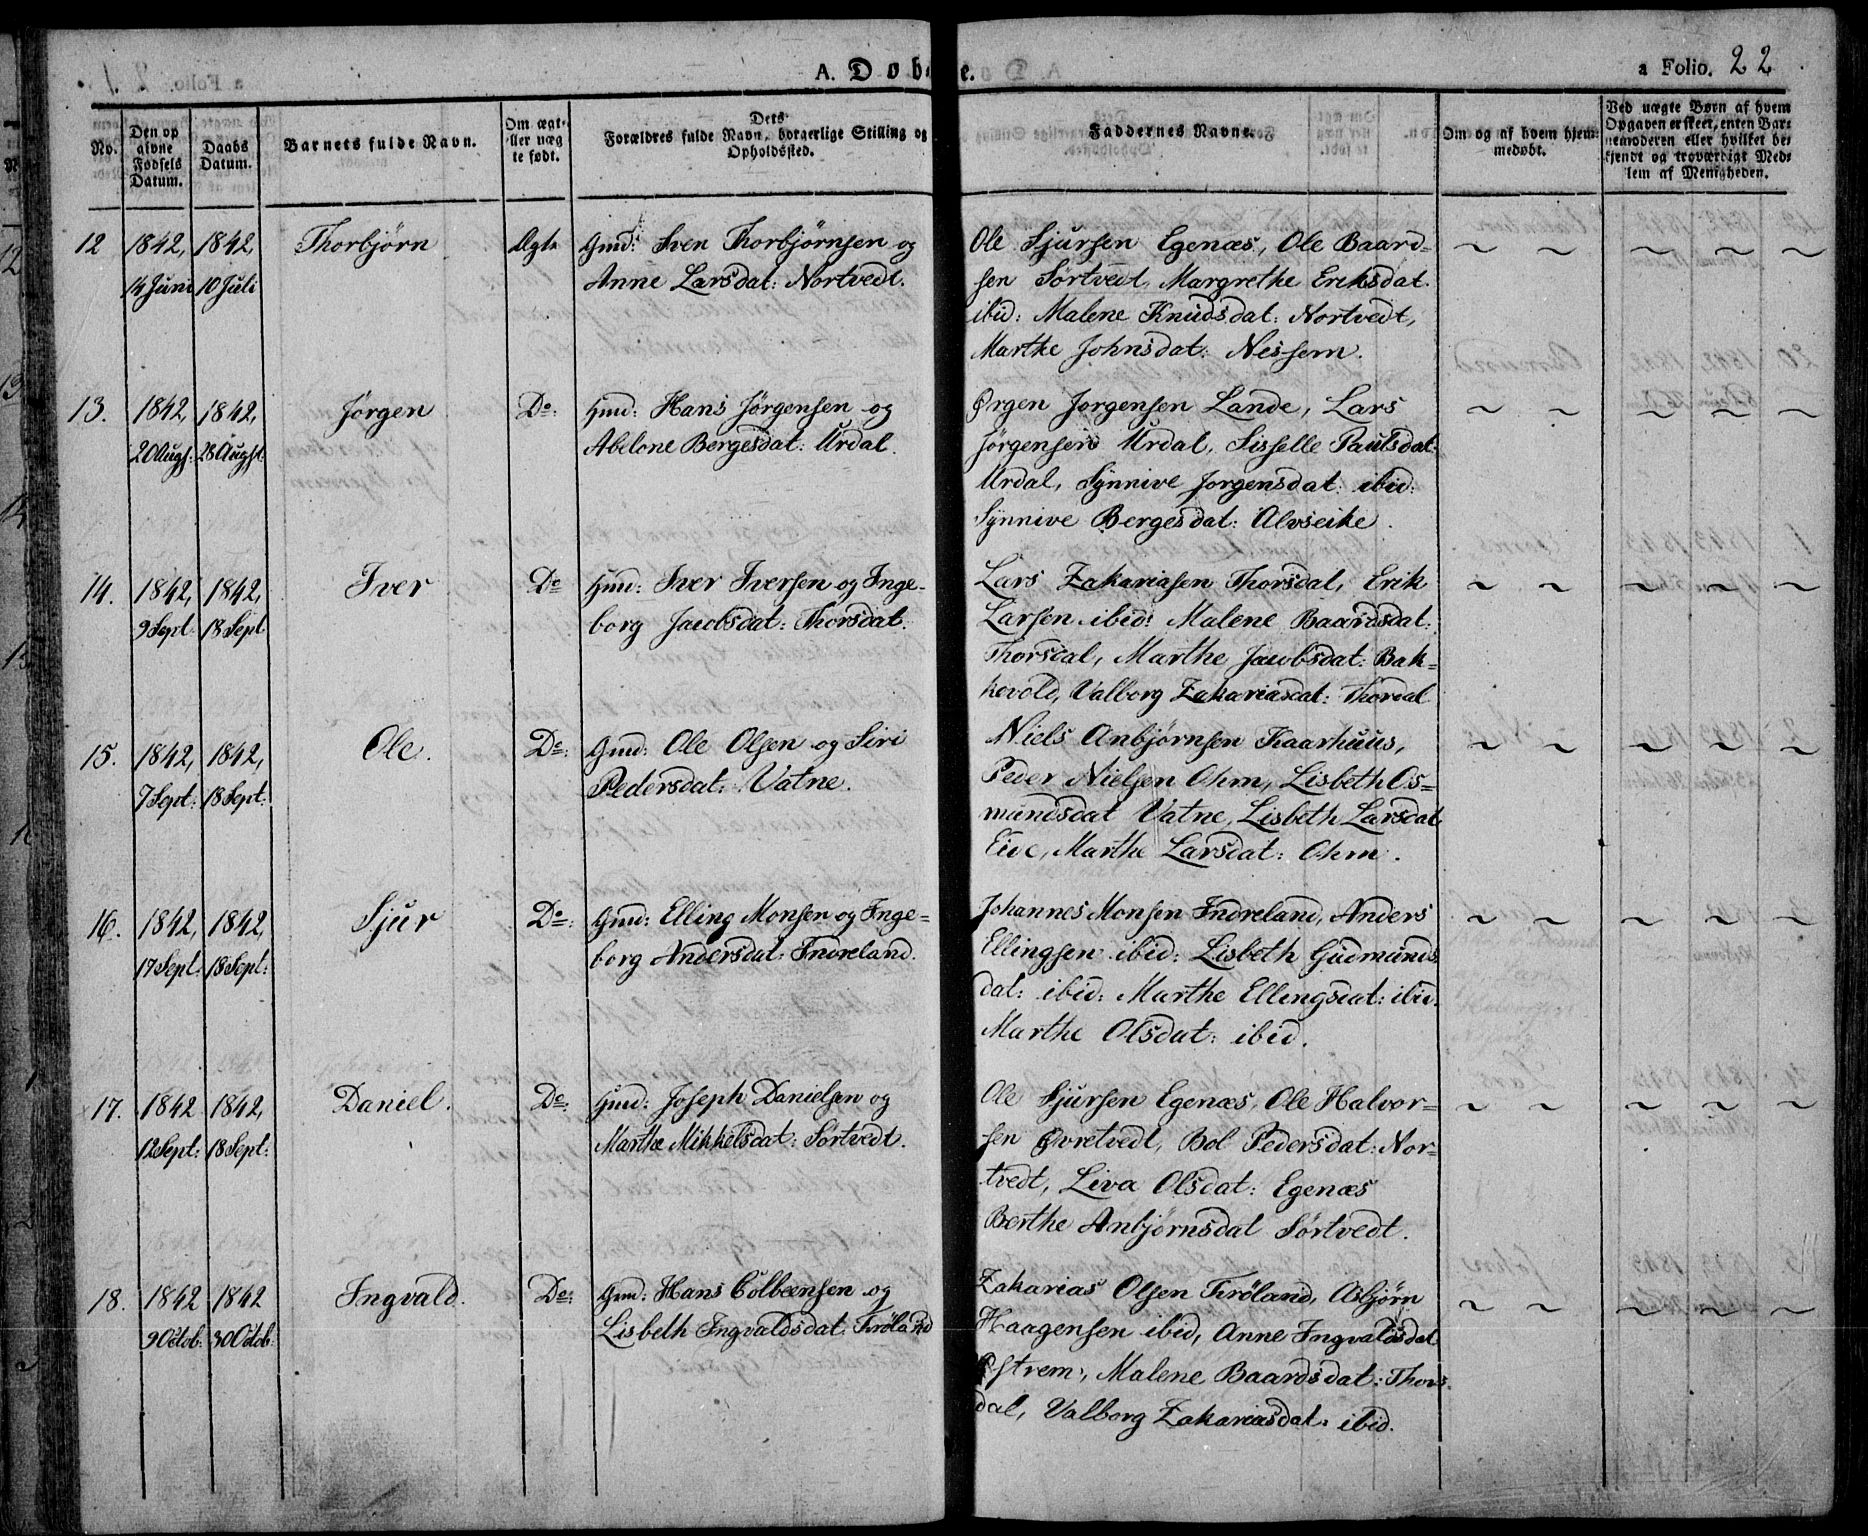 A. Døbte.
a Folio. 22
No.
Den op
givne
Fødsels
Datum.
Daabs
Datum.
Barnets fulde Navn.
Om ægt-
eller uæg
te født.
Dets
Forældres fulde Navn, borgerlige Stilling og
Opholdssted.
Faddernes Navne.
Om og af hvem hjem-
medøbt.
Ved uægte Børn af hvem
Opgaven er skeet, enten Bar-
nemoderen eller hvilket be-
kjendt og troværdigt Med-
lem af Menigheden.
12 1842, 1842, Thorbjørn Ægte Gmd: Sven Thorbjørnsen og Ole Sjursen Egenæs, Ole Baard- ~ ~ ~ ~ ~
14 Juni 10 Juli Anne Larsdat: Nortvedt. sen Sørtvedt, Margrethe Eriksdat.
ibid: Malene Knudsdat: Nortvedt,
Marthe Johnsdat: Nessem.
13. 1842, 1842, Jørgen Do: Gmd: Hans Jørgensen og Ørgen Jorgensen Lande, Lars ~ ~ ~ ~ ~
20 Augs: 28 Augst: Abelone Bergesdat: Urdal. Jørgensen Urdal, Sisselle Paulsdat:
Urdal, Synnive Jorgensdat: ibid:
Synnive Bergesdat: Alvseike.
14. 1842, 1842, Iver Do Gmd: Iver Iversen og Inge- Lars Zakariasen Thorsdal, Erik ~ ~ ~ ~ ~
9 Sept 18 Sept borg Jacobsdat: Thorsdal. Larsen ibid: Malene Baardsdat.
Thorsdal, Marthe Jacobsdat: Bak-
kevold, Valborg Zakariasdat: Thorsdal
15. 1842, 1842, Ole. Do: Gmd: Ole Olsen og Siri Niels Anbjørnsen Kaarhuus, ~ ~ ~ ~ ~
7 Sept: 18 Sept: Pedersdat: Vatne. Peder Nielsen Ohm, Lisbeth Os-
mundsdat Vatne, Lisbeth Larsdat
Eive, Marthe Larsdat: Ohm.
16. 1842, 1842, Sjur Do: Gmd: Elling Monsen og Inge- Johannes Monsen Indreland, Anders ~ ~ ~ ~ ~
17 Sept: 18 Sept: borg Andersdat: Indreland. Ellingsen ibid: Lisbeth Gudmunds-
dat: ibid: Marthe Ellingsdat: ibid.
Marthe Olsdat: ibid.
17. 1842 1842, Daniel. Do: Gmd: Joseph Danielsen og Ole Sjursen Egenæs, Ole Halvor- ~ ~ ~ ~ ~
12 Sept: 18 Sept: Marthe Mikkelsdat: Sørtvedt. sen Øvretvedt, Bol Pedersdat: Nor-
tvedt, Liva Olsdat: Egenæs
Berthe Anbjørnsdat Sørtvedt.
18. 1842 1842 Ingvald. Do: Gmd: Hans Colbeensen og Zakarias Olsen Frøland, Asbjørn ~ ~ ~ ~ ~
9 Octob: 30 Octob: Lisbeth Ingvaldsdat Frøland Haagensen ibid, Anne Ingvaldsdat
Østrem, Malene Baardsdat: Thors-
dal, Valborg Zakariasdat: ibid.